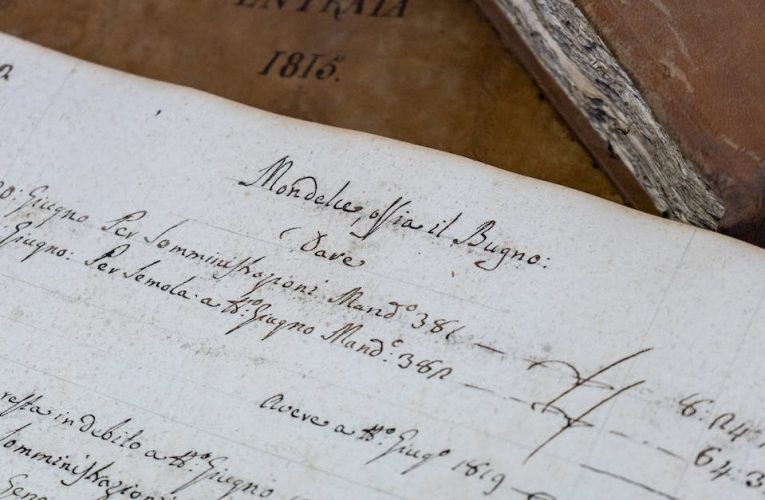 ENTRATA
1815.
Mondelce, ossia il Bugno:
Dare
Giugno Per Somministrazioni Mand:º 381
Giugno: Per Semola a tt:º Giugno Mand:º 382
64:3
Avere a tt:º Giugº 1819
resta in debito a tt:º Giugno
Somministrazioni